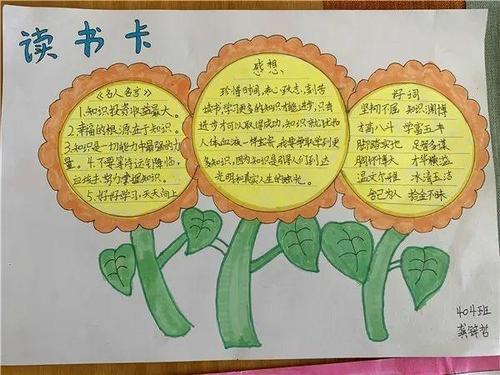 读书卡
《名人名言》
1.知识投资收益最大。
2.幸福的根源在于知识。
3.知识是一切能力中最强的力
量。4.不要等待运气降临，
应该去努力掌握知识。
5.好好学习，天天向上
感想
珍惜时间，刻苦
读书，学习更多的知识才能进步，只有
进步才可以取得成功，知识就犹如
人体血液一样宝贵，我要争取学到更
多知识，因为知识是引导人们到达
光明和真实人生的
好词
坚韧不屈 知识渊博
才高八斗 学富五车
脚踏实地 足智多谋
胸怀博大 才华横溢
温文尔雅 冰清玉洁
舍己为人 拾金不昧
404班
龚